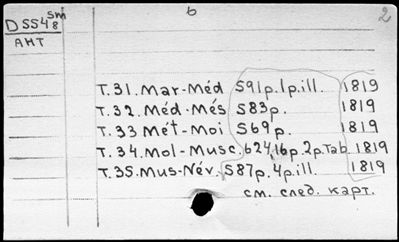 D 554/8 sm
b
2
АНТ
Т.31. Mar-Méd 591p. 1p.ill. 1819
Т.32. Méd-Més 583p. 1819
Т.33 Mét-Moi 569p. 1819
Т.34. Mol-Musc. 624,16p. 2p.Tab. 1819
Т.35. Mus-Név. 587p. 4p.ill. 1819
см. след. карт.